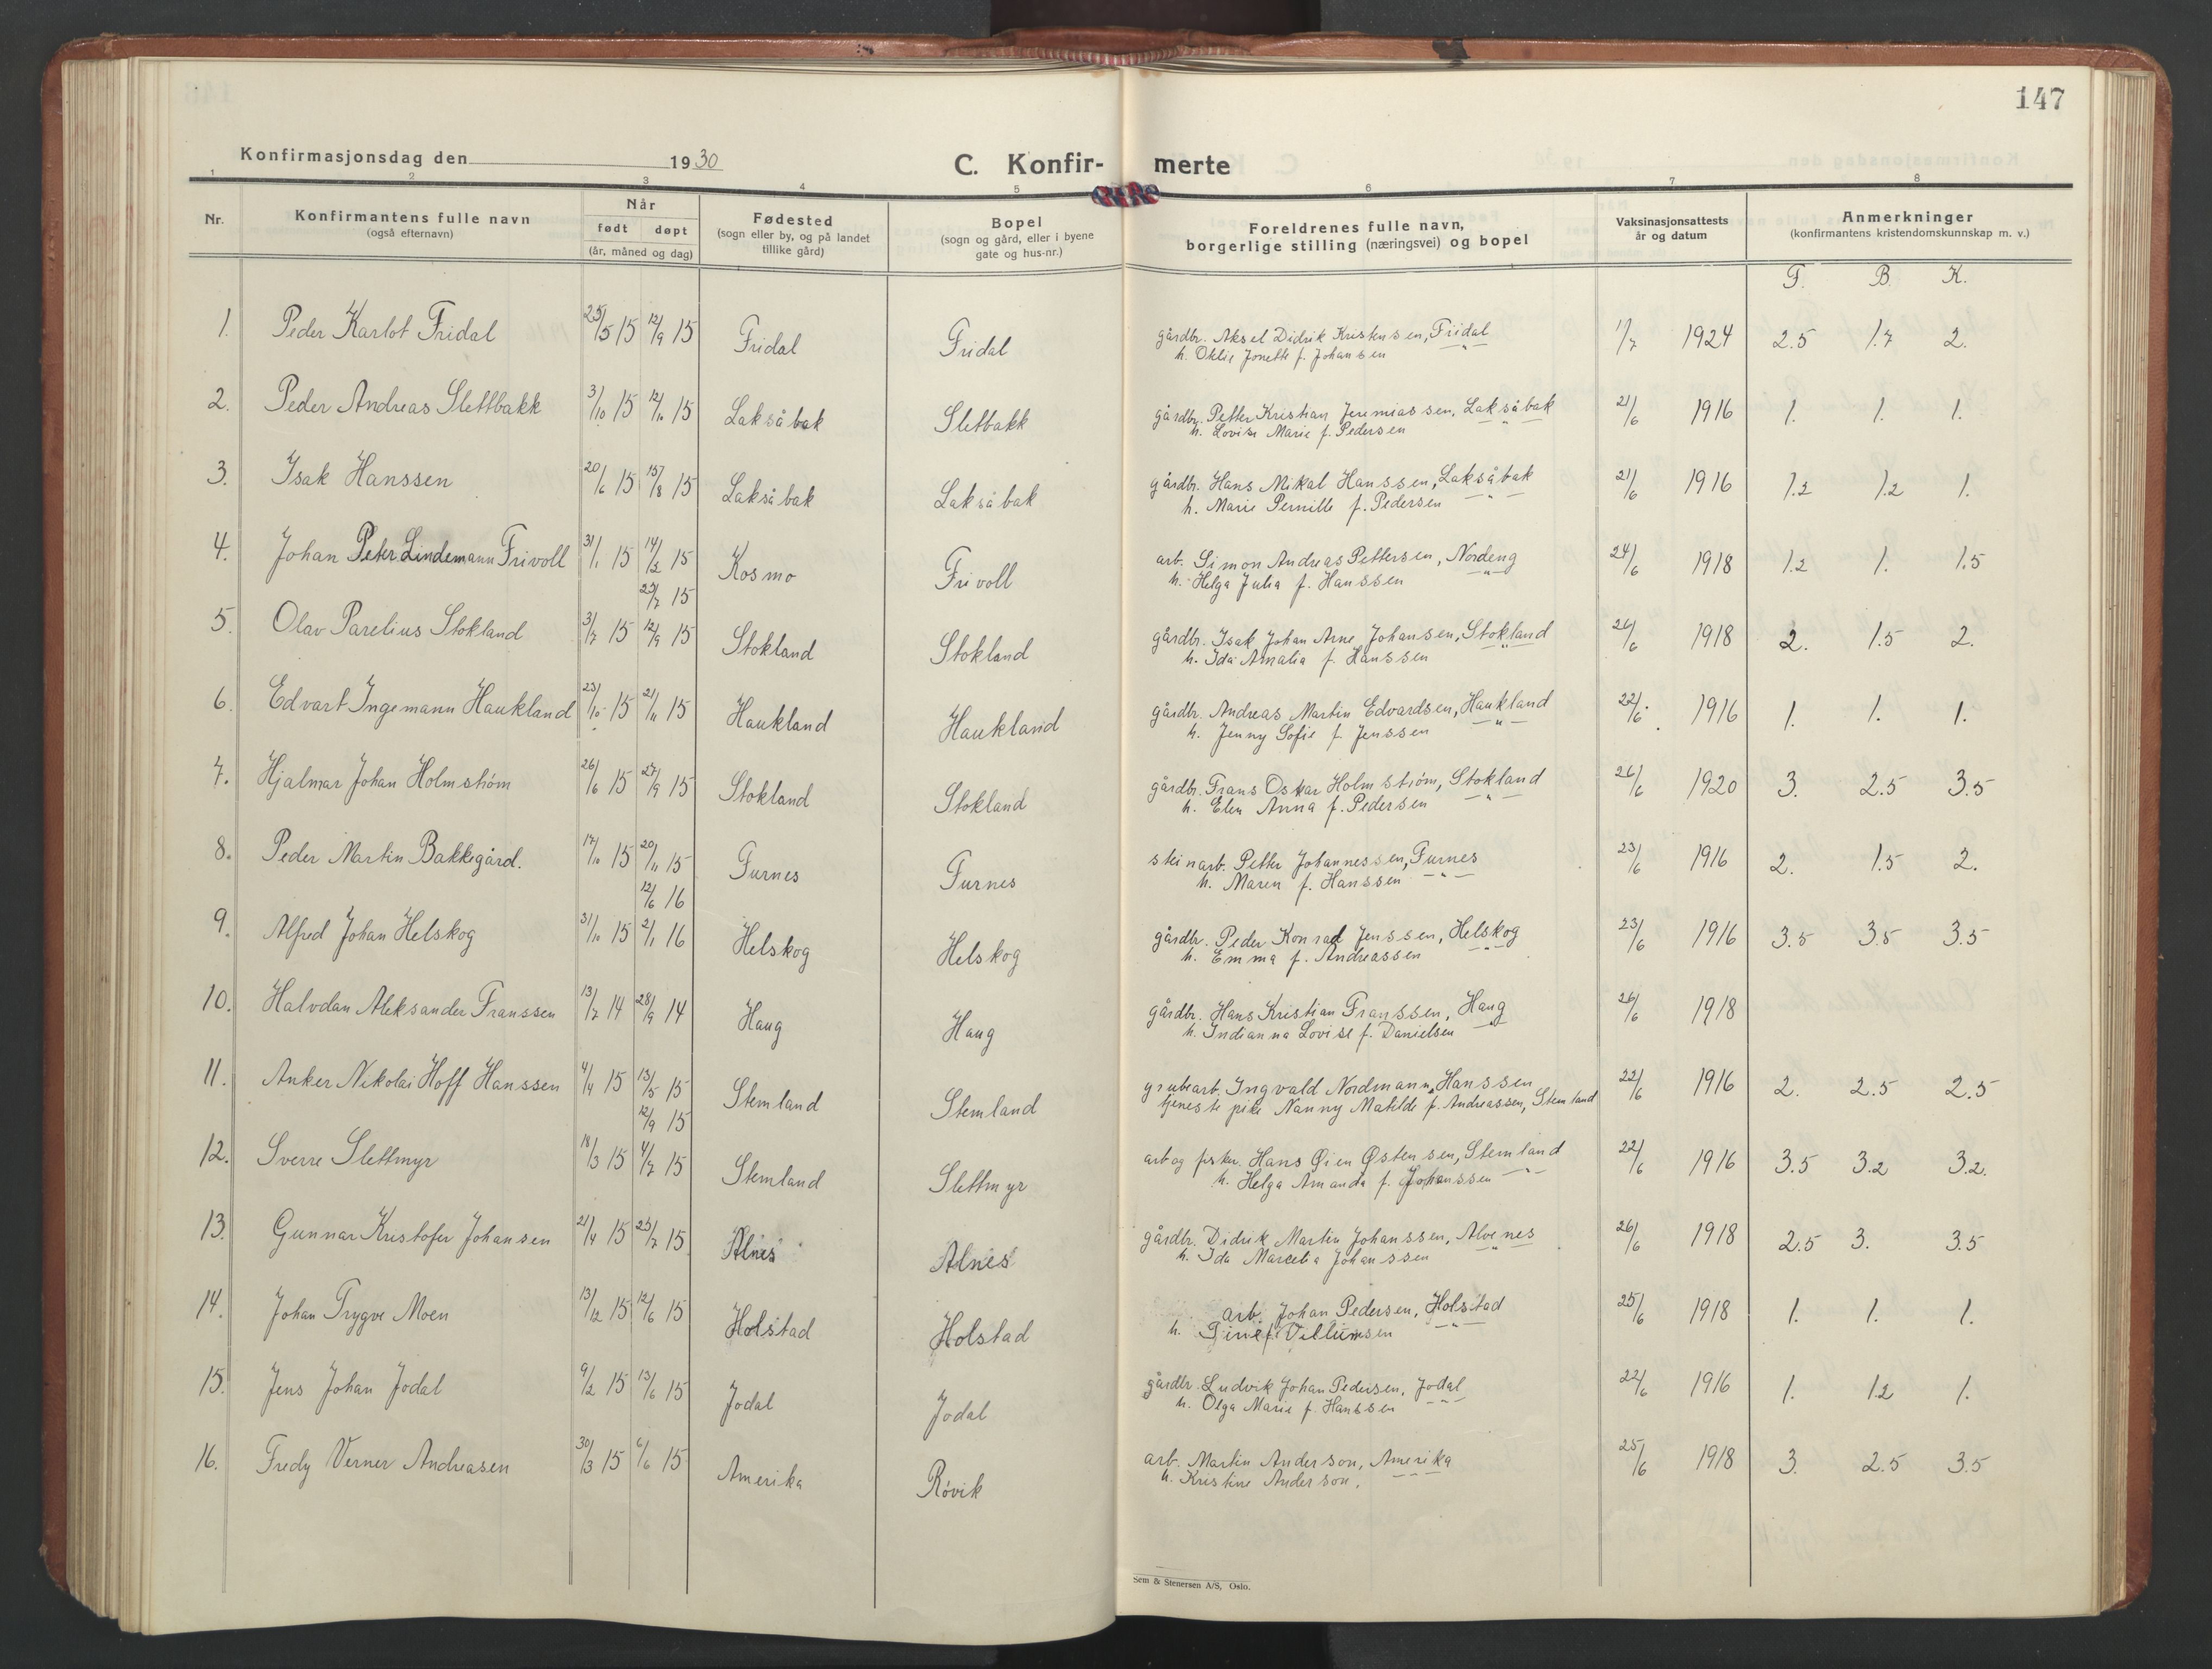 147
Konfirmasjonsdag den 1930
C. Konfirmerte
1 2 3 4 5 6 7 8
Nr.
Konfirmantens fulle navn
(også efternavn)
Når
født døpt
(år, måned og dag)
Fødested
(sogn eller by, og på landet
tillike gård)
Bopel
(sogn og gård, eller i byene
gate og hus-nr.)
Foreldrenes fulle navn,
borgerlige stilling (næringsvei) og bopel
Vaksinasjonsattests
år og datum
Anmerkninger
(konfirmantens kristendomskunnskap m. v.)
F. B. K.
1. Peder Karlot Fridal 25/5 15 12/9 15 Fridal Fridal gårdbr. Aksel Didrik Kristensen, Fridal 11/7 1924 2.5 1.7 2.
h. Otelie Jonette f. Johansen —"—
2. Peder Andreas Slettbakk 3/10 15 12/10 15 Laksåbak Sletbakk gårdbr. Petter Kristian Jeremiassen, Laksåbak 21/6 1916 1. 1. 1.
h. Lovise Marie f. Pedersen —"—
3. Isak Hanssen 20/6 15 15/8 15 Laksåbak Laksåbak gårdbr. Hans Mikal Hanssen, Laksåbak 21/6 1916 1.2 1.2 1.
h. Marie Pernille f. Pedersen —"—
4. Johan Peter Lindemann Frivoll 31/1 15 14/2 15 Kosmo Frivoll arb. Simon Andreas Pettersen, Nordeng 24/6 1918 1.2 1. 1.5
25/7 15 h. Helga Julia f. Hanssen —"—
5. Olav Parelius Stokland 3/7 15 12/9 15 Stokland Stokland gårdbr. Isak Johan Arne Johansen, Stokland 26/6 1918 2. 1.5 2.
h. Ida Amalia f. Hanssen —"—
6. Edvart Ingemann Haukland 23/10 15 21/11 15 Haukland Haukland gårdbr. Andreas Martin Edvardsen, Haukland 22/6 1916 1. 1. 1.
h. Jenny Sofie f. Jenssen —"—
7. Hjalmar Johan Holmstrøm 26/6 15 27/9 15 Stokland Stokland gårdbr. Frans Oskar Holmstrøm, Stokland 26/6 1920 3. 2.5 3.5
h. Elen Anna f. Pedersen —"—
8. Peder Martin Bakkegård. 17/10 15 20/11 15 Furnes Furnes steinarb. Petter Johannessen, Furnes 23/6 1916 2. 1.5 2.
12/6 16 h. Maren f. Hanssen —"—
9. Alfred Johan Helskog 31/10 15 2/1 16 Helskog Helskog gårdbr. Peder Konrad Jenssen, Helskog 23/6 1916 3.5 3.5 3.5
h. Emma f. Andreassen —"—
10. Halvdan Aleksander Franssen 13/7 14 28/9 14 Haug Haug gårdbr. Hans Kristian Franssen, Haug 26/6 1918
h. Indianna Lovise f. Danielsen —"—
11. Anker Nikolai Hoff Hanssen 4/4 15 13/5 15 Stemland Stemland grubearb. Ingvald Nordmann Hanssen 22/6 1916 2. 2.5 2.5
12/9 15 tjenestepike Nanny Matilde f. Andreassen, Stemland
12. Sverre Slettmyr 18/3 15 4/7 15 Stemland Slettmyr arb og fisker. Hans Øien Østensen, Stemland 22/6 1916 3.5 3.2 3.2.
h. Helga Amanda f. Johanssen —"—
13. Gunnar Kristofer Johansen 21/4 15 25/7 15 Alnes Alnes gårdbr. Didrik Martin Johanssen, Alvenes 26/6 1918 2.5 3. 3.5
h. Ida Marcelia Johanssen —"—
14. Johan Trygve Moen 13/12 15 12/6 15 Holstad Holstad arb. Johan Pedersen, Holstad 25/6 1918 1. 1. 1.
h. Tine f. Villumsen —"—
15. Jens Johan Jodal 9/2 15 13/6 15 Jodal Jodal gårdbr. Ludvik Johan Pedersen, Jodal 22/6 1916 1. 1.2 1.
h. Olga Marie f. Hanssen —"—
16. Fredy Verner Andreasen 30/3 15 6/6 15 Amerika Røvik arb. Martin Anderson, Amerika 25/6 1918 3. 2.5 3.5
h. Kristine Anderson.
Sem & Stenersen A/S, Oslo.